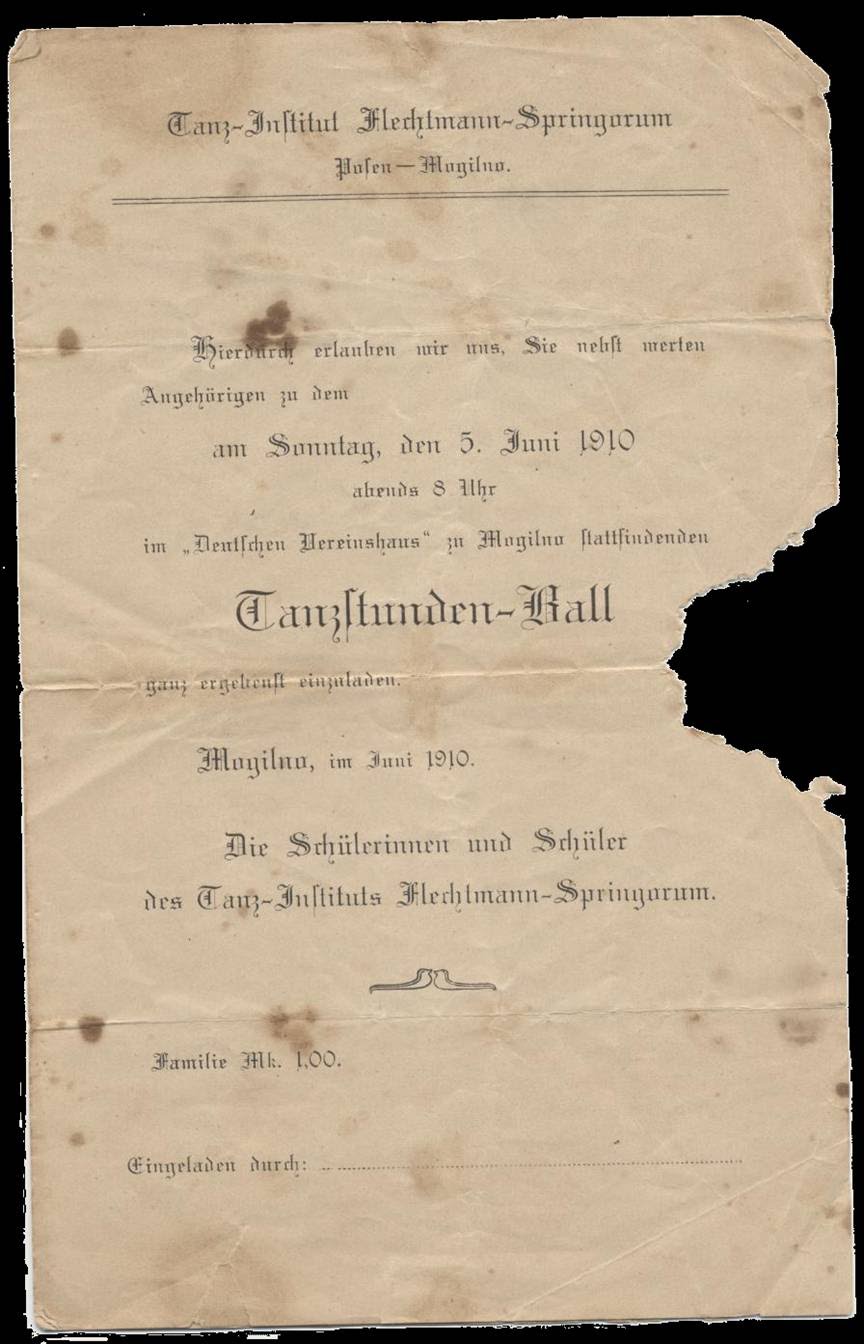 Tanz-Institut Flechtmann-Springorum
Posen—Mogilno.
Hierdurch erlauben wir uns, Sie nebst werten
Angehörigen zu dem
am Sonntag, den 5. Juni 1910
abends 8 Uhr
im „Deutschen Vereinshaus“ zu Mogilno stattfindenden
Tanzstunden-Ball
ganz ergebenst einzuladen.
Mogilno, im Juni 1910.
Die Schülerinnen und Schüler
des Tanz-Instituts Flechtmann-Springorum.
Familie Mk. 1,00.
Eingeladen durch: